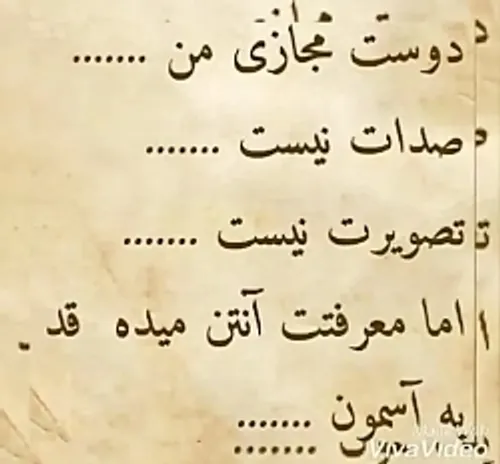 دوست مجازی من .......
صدات نیست .......
تصویرت نیست .......
اما معرفتت آنتن میده قد
یه آسمون .......
Made With
VivaVideo